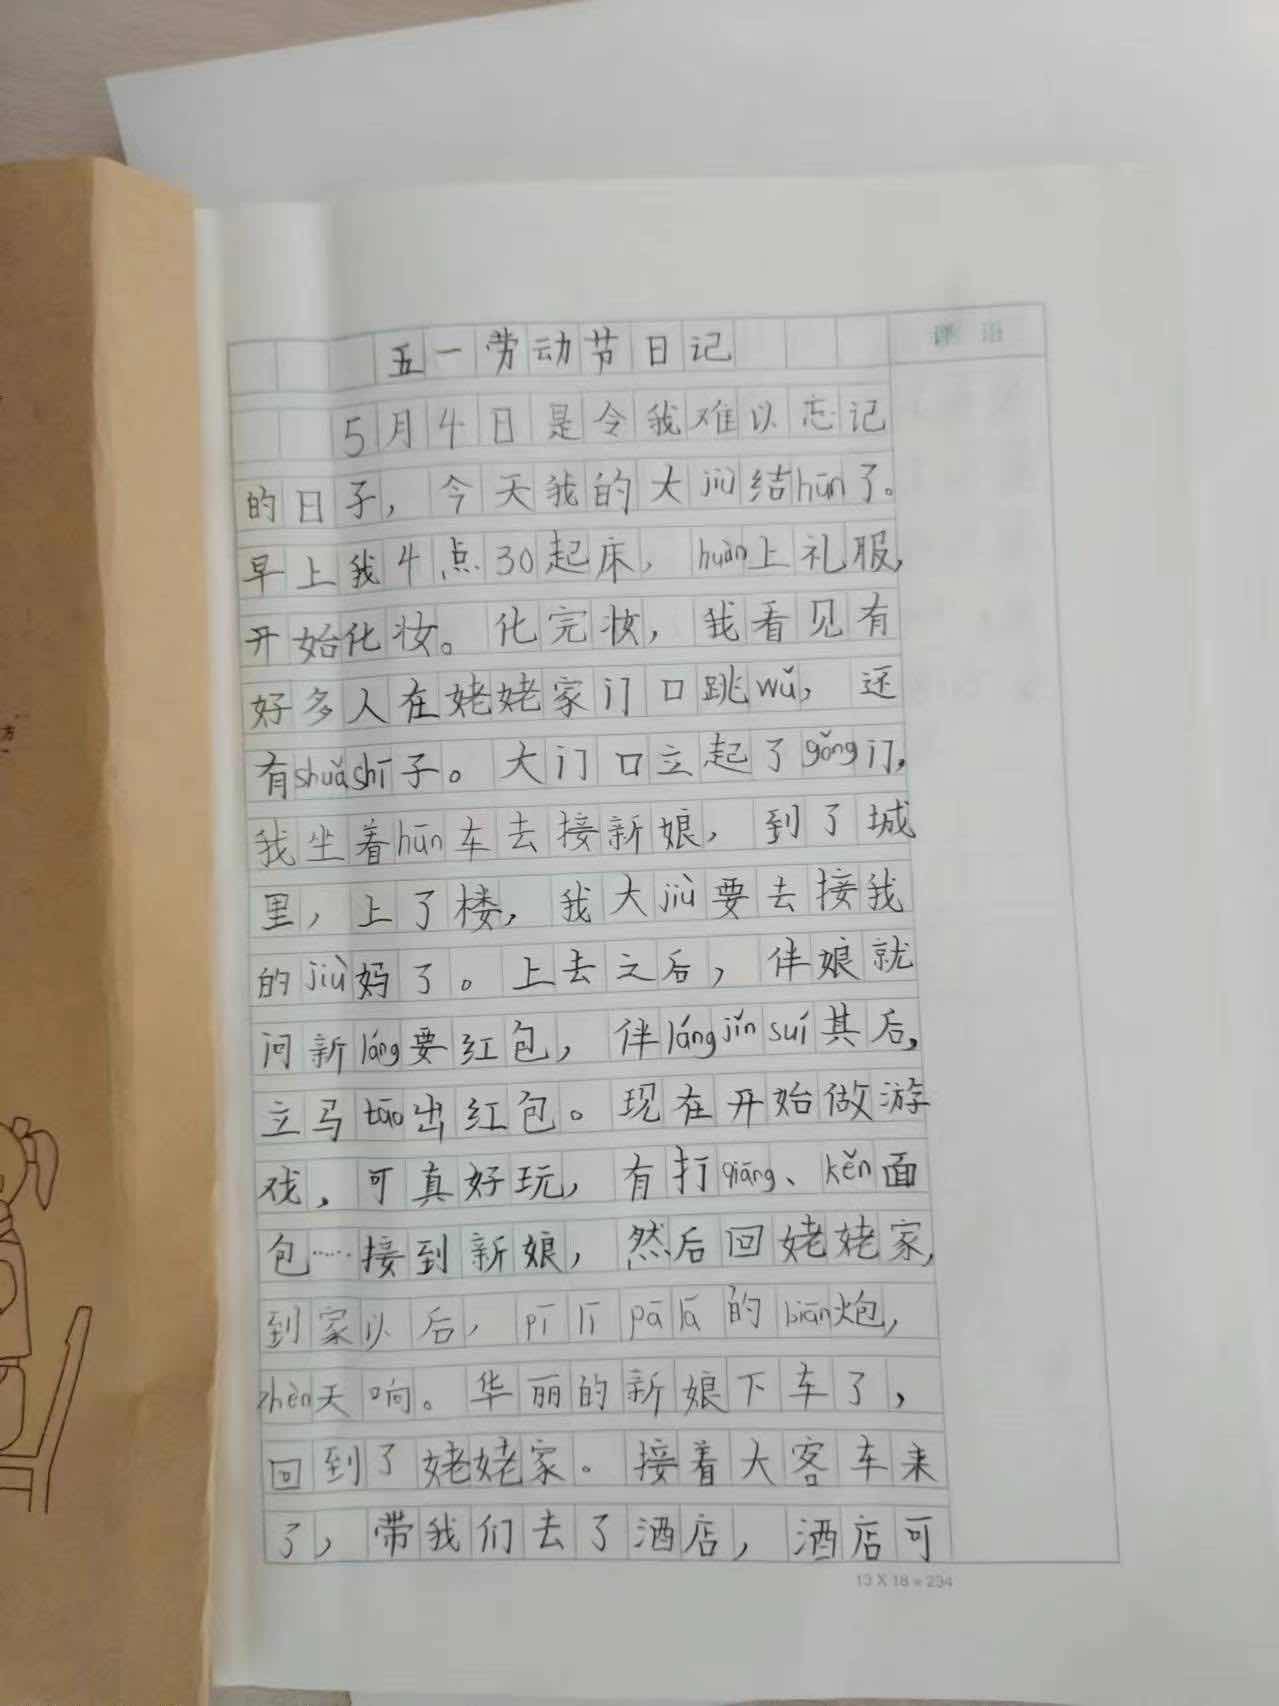 五一劳动节日记
评语
5月4日是令我难以忘记
的日子，今天我的大jiù结hūn了。
早上我4点30起床，huàn上礼服，
开始化妆。化完妆，我看见有
好多人在姥姥家门口跳wǔ，还
有shuǎshī子。大门口立起了gǒng门，
我坐着hūn车去接新娘，到了城
里，上了楼，我大jiù要去接我
的jiù妈了。上去之后，伴娘就
问新láng要红包，伴láng jǐn suí其后，
立马tāo出红包。现在开始做游
戏，可真好玩，有打qiāng、kěn面
包……接到新娘，然后回姥姥家，
到家以后，pī lī pā lā的biān炮，
zhèn天响。华丽的新娘下车了，
回到了姥姥家。接着大客车来
了，带我们去了酒店，酒店可
13 X 18 = 234
方